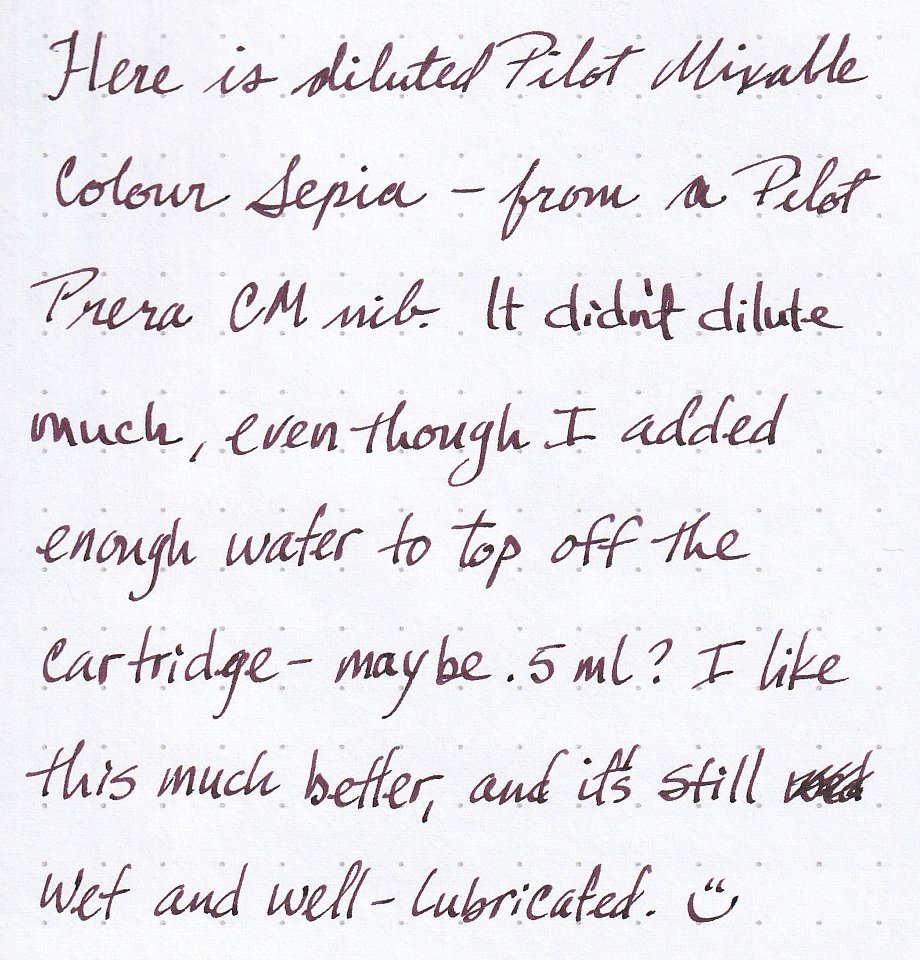 Here is diluted Pilot Mixable
Colour Sepia - from a Pilot
Prera CM nib. It didn't dilute
much, even though I added
enough water to top off the
cartridge - maybe .5 ml? I like
this much better, and it's still
wet and well-lubricated. ت